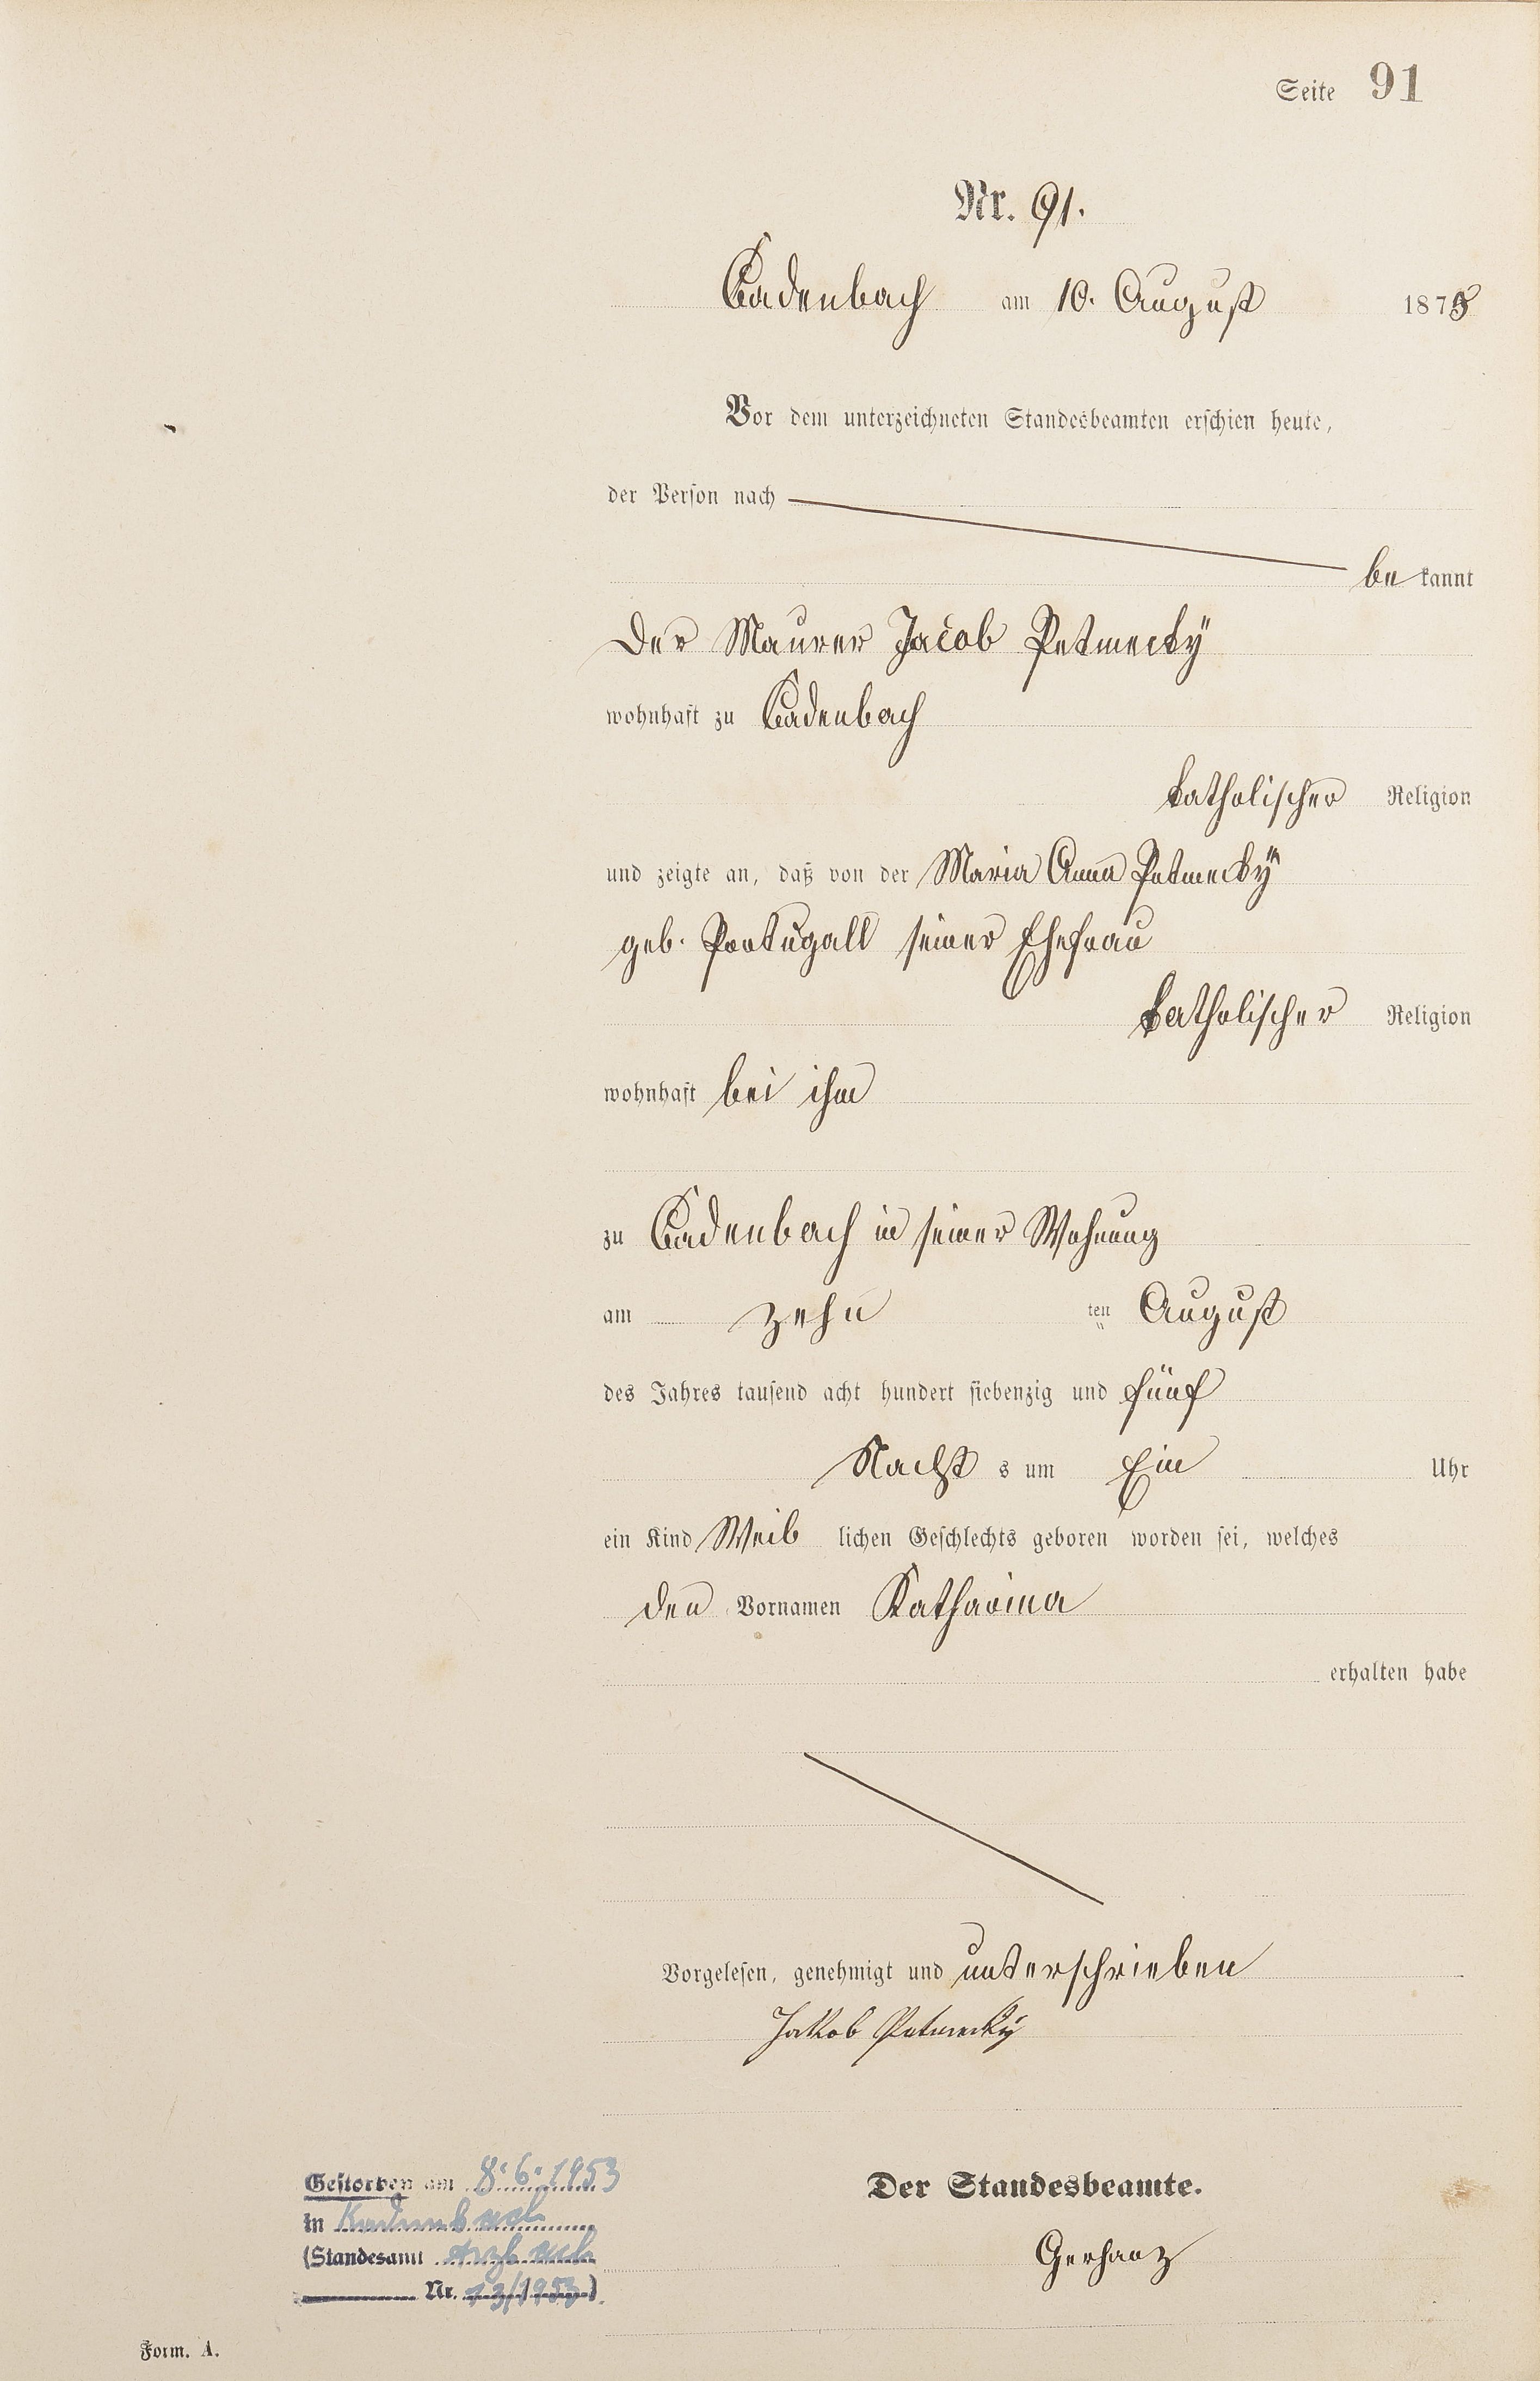 Seite 91
Nr. 91.
Cadenbach am 10. August 1875
Vor dem unterzeichneten Standesbeamten erschien heute,
der Person nach
be kannt
Der Maurer Jacob Petmecky
wohnhaft zu Cadenbach
katholischer Religion
und zeigte an, daß von der Maria Anna Petmecky
geb. Portugall seiner Ehefrau
katholischer Religion
wohnhaft bei ihm
zu Cadenbach in seiner Wohnung
am zehn ten August
des Jahres tausend acht hundert siebenzig und fünf
Nacht s um Ein Uhr
ein Kind Weib lichen Geschlechts geboren worden sei, welches
den Vornamen Katharina
erhalten habe
Vorgelesen, genehmigt und unterschrieben
Jakob Petmecky
Der Standesbeamte.
Gerharz
Gestorben am 8.6.1953
in Kadenbach
(Standesamt Arzbach
Nr. 13/1953)
Form. A.